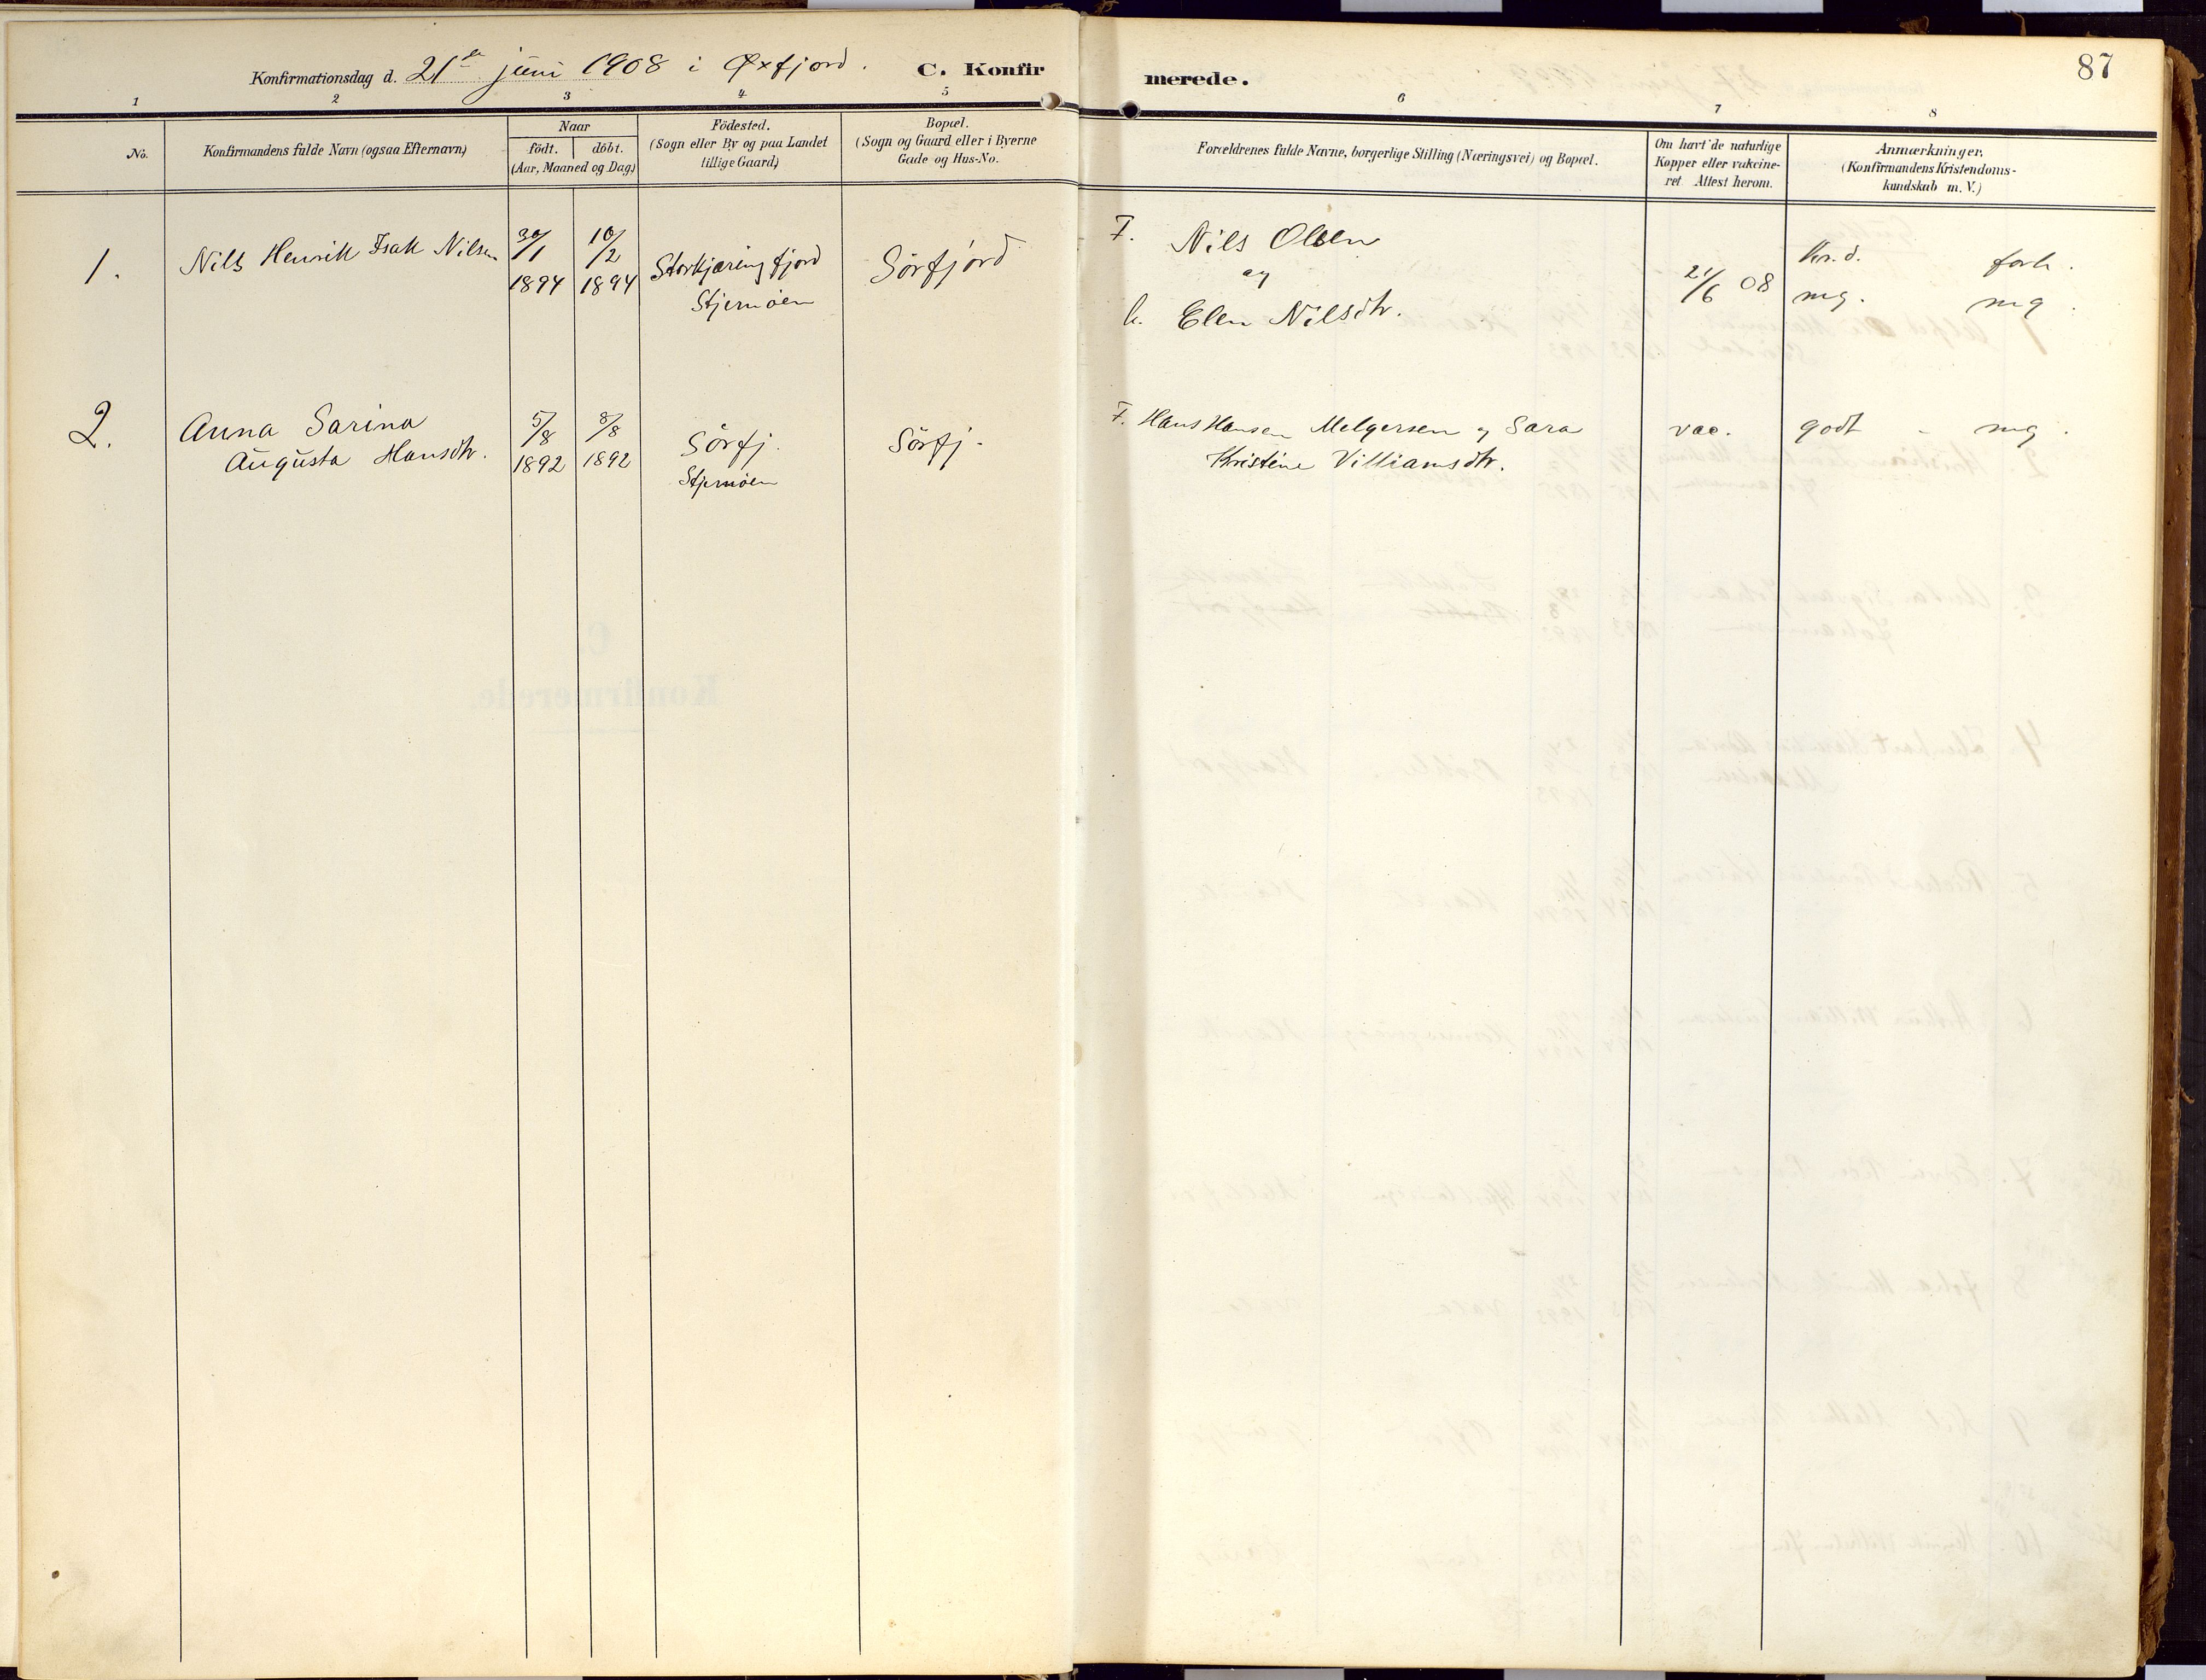 87
Konfirmationsdag d. 21de juni 1908 i Øxfjord. C. Konfirmerede.
1 2 3 4 5 6 7 8
No.
Konfirmandens fulde Navn (ogsaa Efternavn)
Naar
födt. döbt.
(Aar, Maaned og Dag)
Födested.
(Sogn eller By og paa Landet
tillige Gaard)
Bopæl.
(Sogn og Gaard eller i Byerne
Gade og Hus-No.
Forældrenes fulde Navne, borgerlige Stilling (Næringsvei) og Bopæl.
Om havt de naturlige
Kopper eller vakcine-
ret Attest herom.
Anmærkninger,
(Konfirmandens Kristendoms-
kundskab m. V.)
1. Nils Henrik Isak Nilsen 30/1 1894 10/2 1894
Storkjæringfjord
Stjernöen
Sörfjord
F. Nils Olsen
og
h. Elen Nilsdtr.
21/6 08
Kr.d. forh.
mg. mg.
2. Anna Sarina
Augusta Hansdtr.
5/8 1892 8/8 1892
Sörfj.
Stjernöen
Sörfj.
F. Hans Hansen Melgersen og Sara
Kristine Villiamsdtr.
vac.
godt - mg.